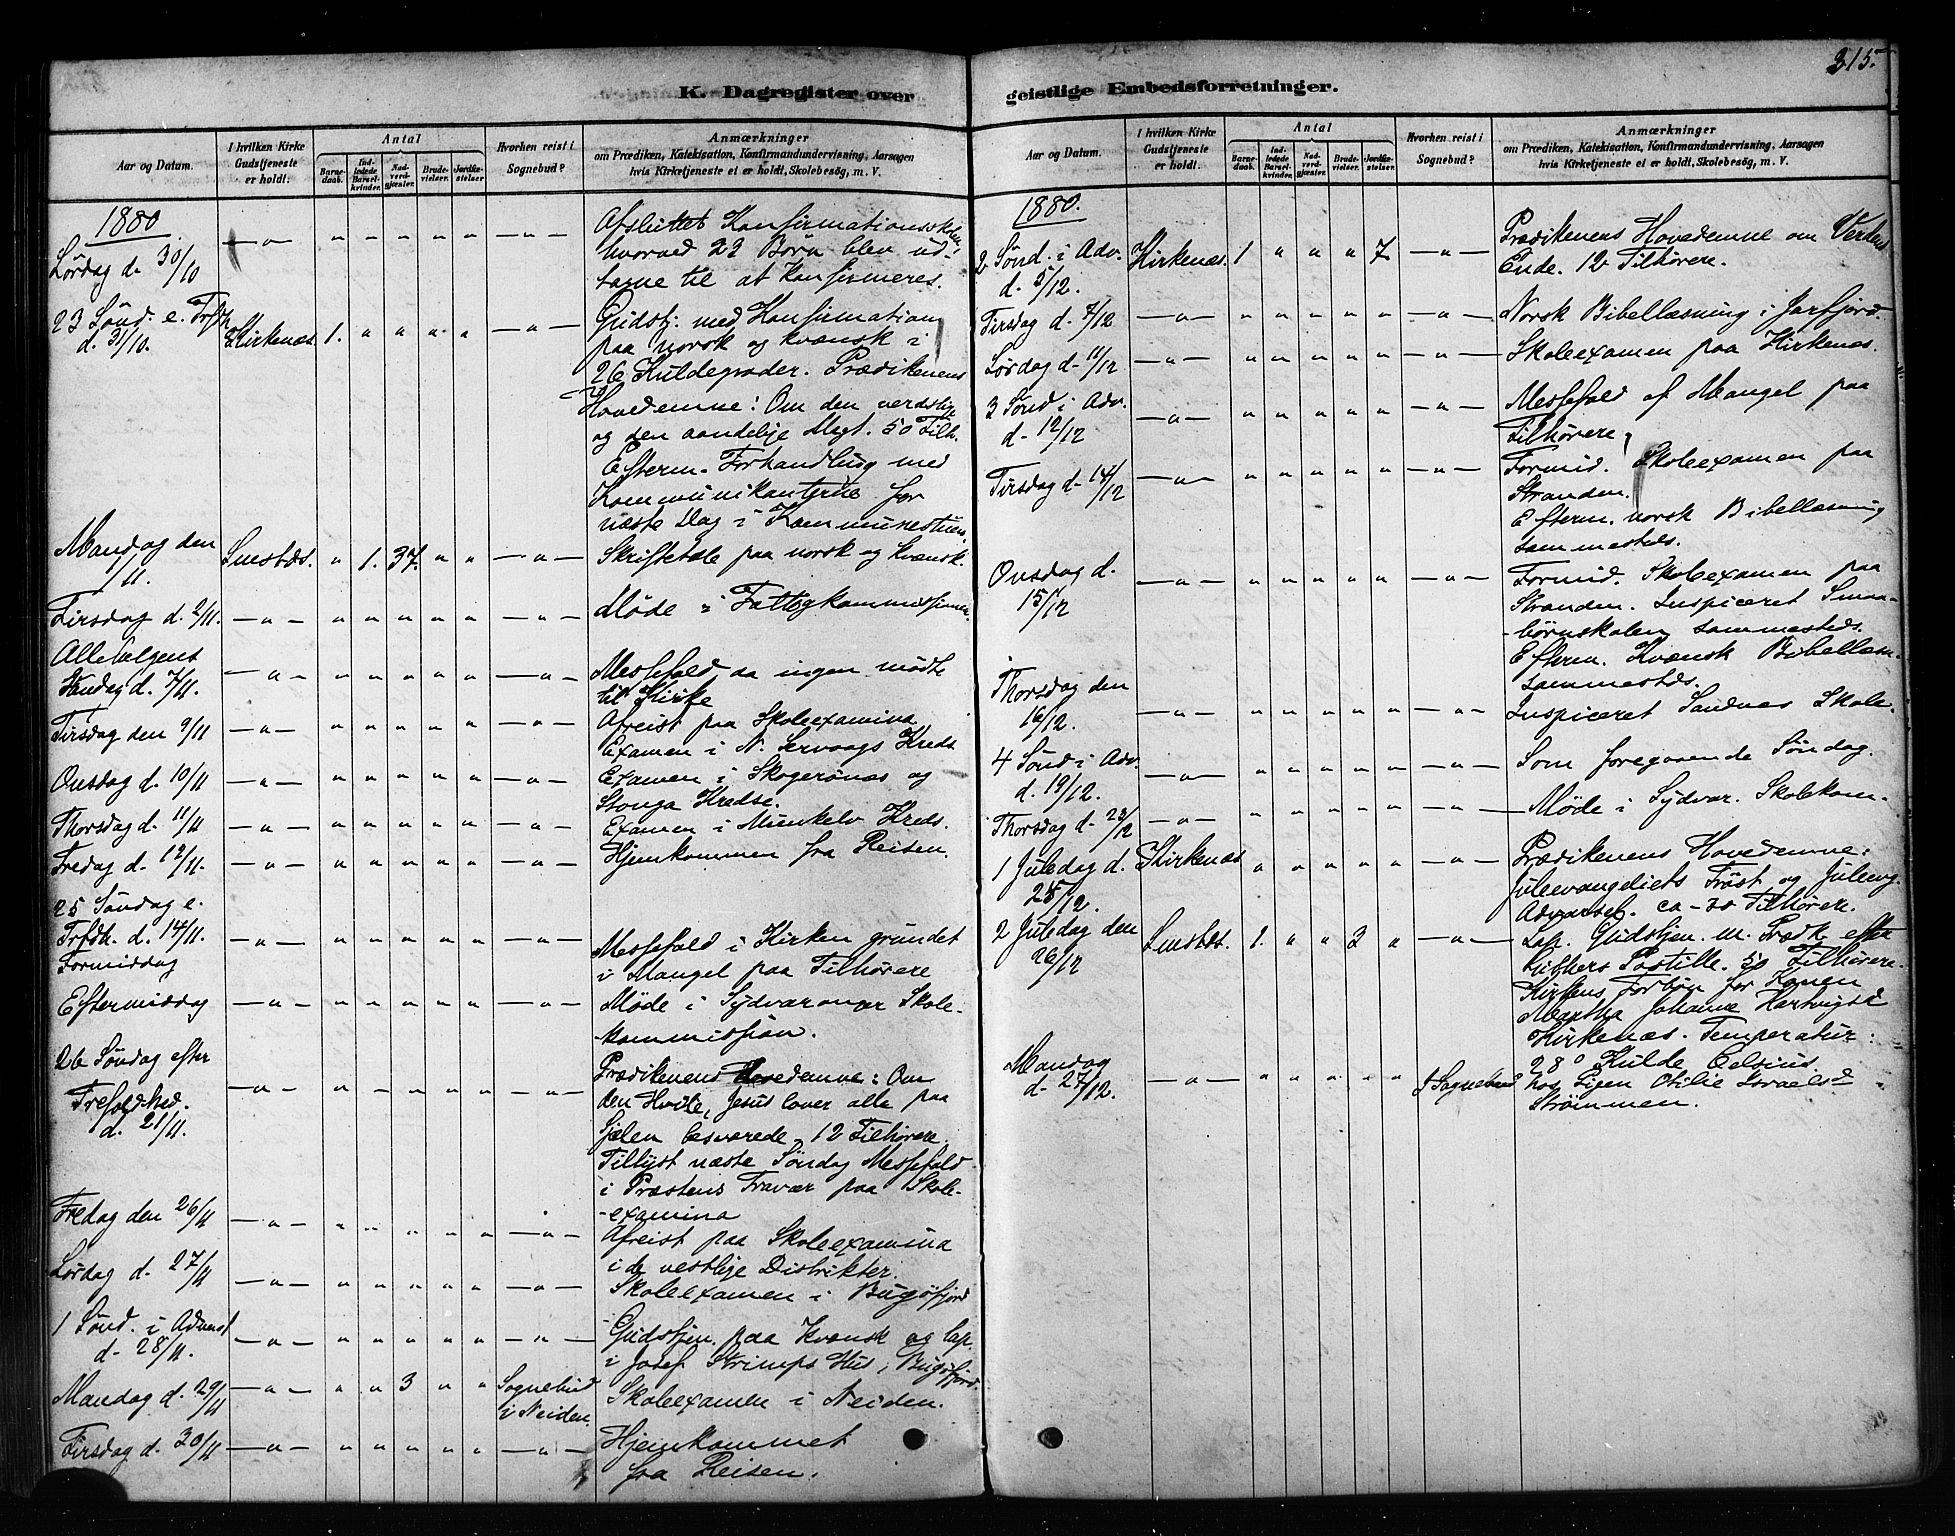 315.
K. Dagregister over
geistlige Embedsforretninger.
Aar og Datum.
I hvilken Kirke
Gudstjeneste
er holdt.
Antal
Barne-
daab.
Ind-
ledede
Barsel-
kvinder.
Nad-
verd-
gjæster.
Brude-
vielser.
Jordfæ-
stelser
Hvorhen reist i
Sognebud?
Anmærkninger
om Prædiken, Katekisation, Konfirmandundervisning, Aarsagen
hvis Kirketjeneste ei er holdt, Skolebesög, m. V.
1880
Lørdag d. 30/10
Afsluttet Konfirmationsskolen,
hvorved 22 Børn blev ud-
tagne til at Konfirmeres.
23 Sönd. e. Trfdh.
d. 31/10.
Kirkenæs. 1. " " " " —"—
Gudstj. med Konfirmation
paa norsk og kvænsk i
26 Kuldegrader. Prædikenens
Hovedemne: Om den verdslige
og den aandelige Magt. 50 Tilh.
Efterm. Forhandling med
Kommunikanterne for
næste Dag i Kommunestuen.
Mandag den
1/11.
Smstds. " 1. 37. " " —"—
Skriftetale paa norsk og Kvænsk.
Tirsdag d. 2/11.
Møde i Fattigkommissionen.
Allehelgens
Søndag d. 7/11.
Messefald, da ingen mødte
til Kirke
Tirsdag den 9/11
Afreist paa Skoleexamina
Examen i N. Servaags Kreds
Onsdag d. 10/11
Examen i Skogerönæs og
Stonga Kredse.
Thorsdag d. 11/11
Examen i Munkelv Kreds.
Fredag d. 12/11.
Hjemkommen fra Reisen.
25 Søndag e.
Trfdh. d. 14/11.
Formiddag
Messefald i Kirken grundet
i Mangel paa Tilhørere
Eftermiddag
Møde i Sydvaranger Skole-
kommission.
26 Søndag efter
Trefoldhed.
d. 21/11.
Prædikenens Hovedemne: Om
den Hvile, Jesus lover alle paa
Sjælen besværede. 12 Tilhørere.
Tillyst næste Søndag Messefald
i Præstens Fravær paa Skole-
-examina
Fredag den 26/11
Afreist paa Skoleexamina
i de vestlige Distrikter.
Lørdag d. 27/11
Skoleexamen i Bugöfjord
1 Sönd. i Advent
d. 28/11.
Gudstjen. paa Kvænsk og lap.
i Josef Strimps Hus i Bugöfjord.
Mandag d. 29/11
3
Sognebud
i Neiden.
Skoleexamen i Neiden.
Tirsdag d. 30/11
Hjemkommet
fra Reisen.
Aar og Datum.
I hvilken Kirke
Gudstjeneste
er holdt.
Antal
Barne-
daab.
Ind-
ledede
Barsel-
kvinder.
Nad-
verd-
gjæster.
Brude-
vielser.
Jordfæ-
stelser.
Hvorhen reist i
Sognebud?
Anmærkninger
om Prædiken, Katekisation, Konfirmandundervisning, Aarsagen
hvis Kirketjeneste ei er holdt, Skolebesög, m. V.
1880.
2 Sönd. i Adv.
d. 5/12.
Kirkenæs. 1 " " " 7. —"—
Prædikenens Hovedemne om Verdens
Ende. 12 Tilhørere.
Tirsdag d. 7/12
Norsk Bibellæsning i Jarfjord.
Lørdag d. 11/12
Skoleexamen paa Kirkenæs.
3 Sönd i Adv.
d. 12/12
Messefald af Mangel paa
Tilhørere,
Tirsdag d. 14/12
Formid. Skoleexamen paa
Stranden.
Efterm. norsk Bibellæsning
sammesteds.
Onsdag d.
15/12
Formid. Skoleexamen paa
Stranden. Inspiceret Smaa-
-børnskolen sammesteds.
Efterm. Kvænsk Bibellæsn.
sammesteds.
Thorsdag den
16/12.
Inspiceret Sandnæs Skole.
4 Sönd i Adv.
d. 19/12.
Som foregaaende Søndag.
Thorsdag d. 23/12
Møde i Sydvar. Skolekom.
1 Juledag d.
25/12.
Kirkenæs
Prædikenens Hovedemne:
Juleevangeliets Trøst og
Advarsel. ca 30 Tilhørere.
2 Juledag den
26/12
Smstds. 1. " " 3 " —"—
Lap. Gudstjen. m. Prædk. efter
Luthers Postille. 50 Tilhørere.
Kirkens Forbøn for Konen
Martha Johanne Hartvigsd
Kirkenæs. Temperatur:
28° Kulde Celsius.
Mandag
d. 27/12.
I Sognebud
hos Pigen Otilie Israelsd
Strømmen.